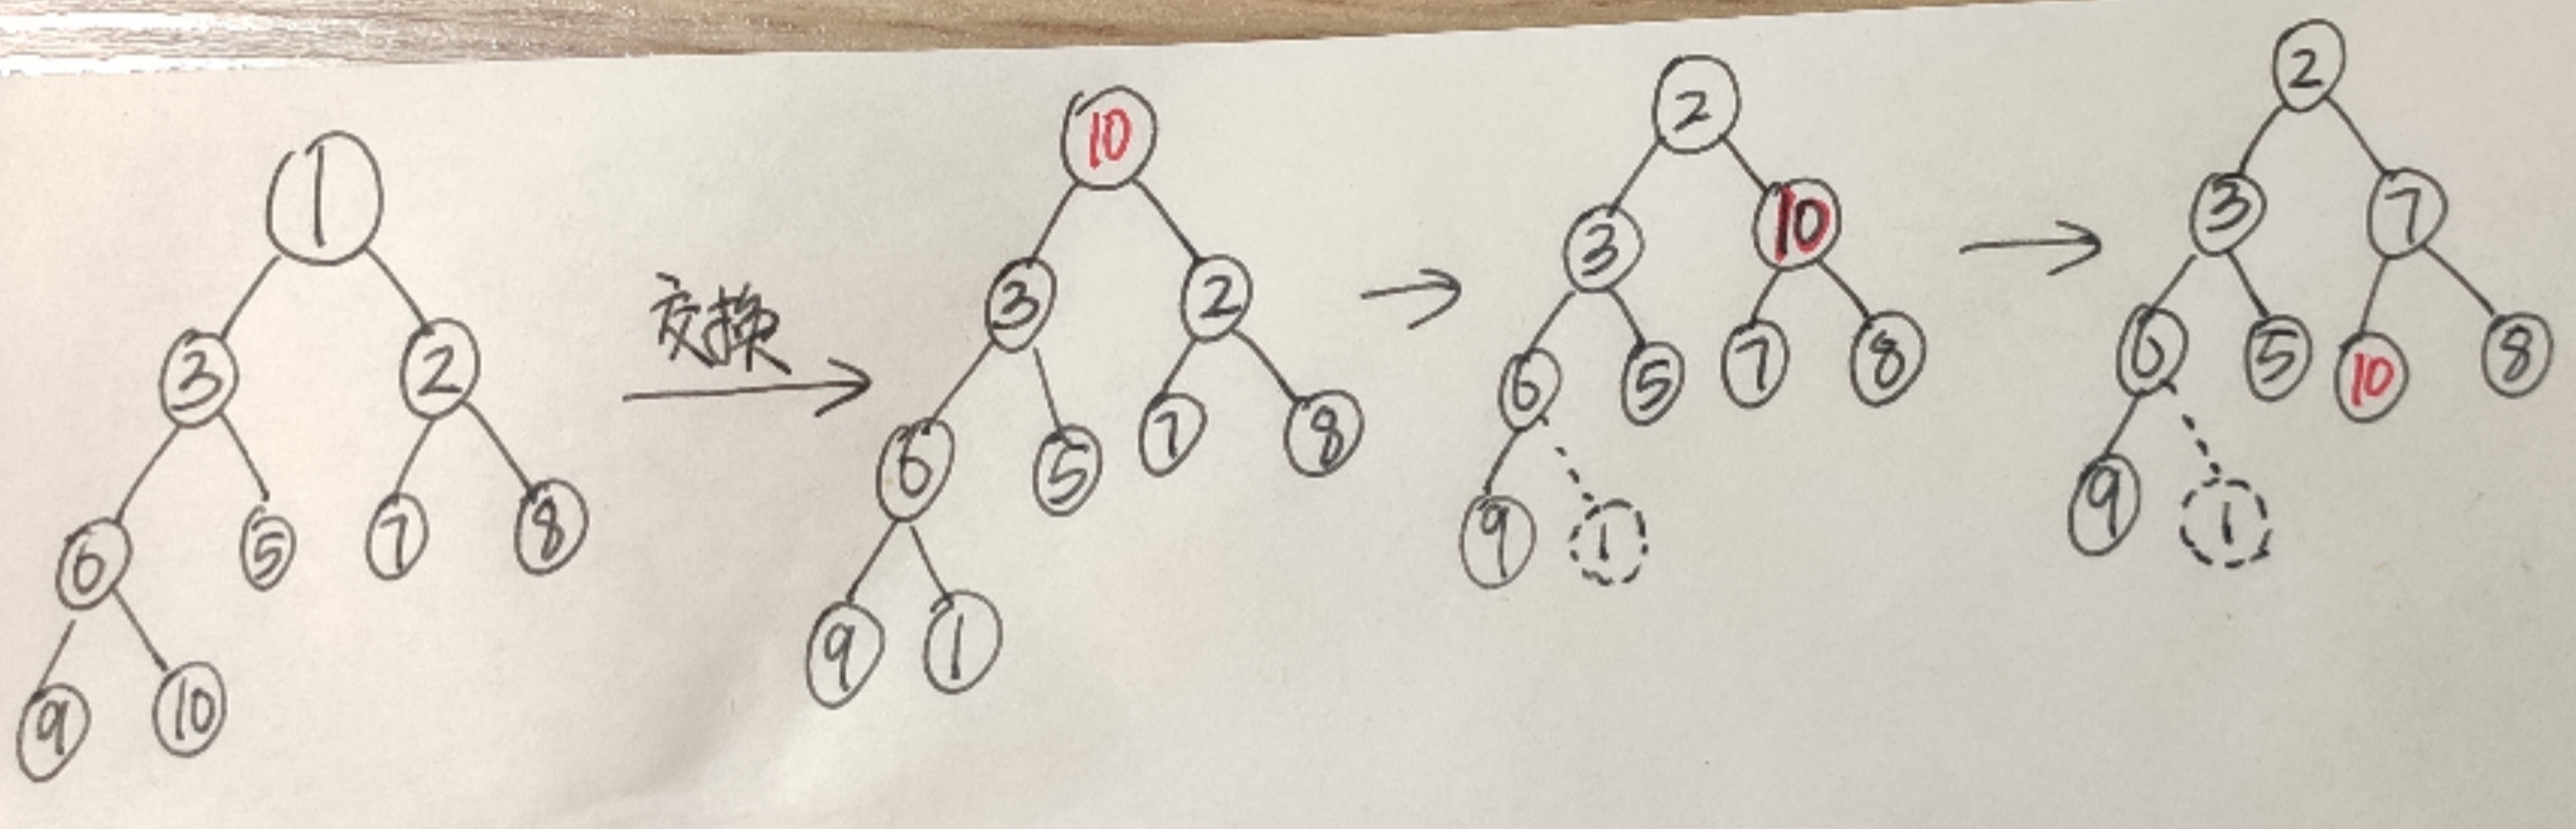 1
3 2
6 5 7 8
9 10
交换
10
3 2
6 5 7 8
9 1
2
3 10
6 5 7 8
9 1
2
3 7
6 5 10 8
9 1